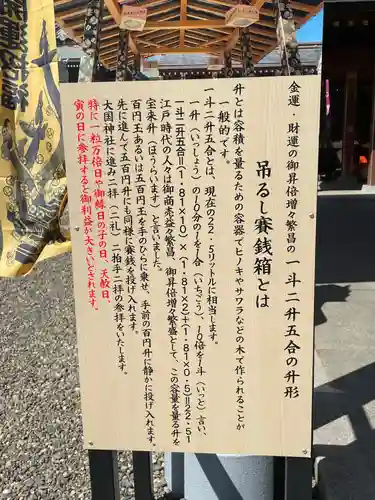 金運・財運の御昇倍増々繁昌の一斗二升五合の升形
吊るし賽銭箱とは
升とは容積を量るための容器でヒノキやサワラなどの木で作られることが
一般的です。
一斗二升五合とは、現在の22・5リットルに相当します。
一升（いっしょう）の10分の1を1合（いちごう）、10倍を1斗（いっと）言い、
一斗二升五合＝（1・81×10）×（1・81×2）＋（1・81×0・5）＝22・51
江戸時代の人々は御商売益々繁昌、御昇倍増々繁盛として、この容量を量る升を
宝来升（ほうらいます）と言いました。
百円玉あるいは五百円玉を手のひらに乗せ、手前の百円升に静かに投げ入れます。
先に進んで五百円升にも同様に賽銭を投げ入れます。
大国神社に進み二拝（二礼）二拍手二拝の参拝をいたします。
特に一粒万倍日や御縁日の子の日、天赦日、
寅の日に参拝すると御利益が大きいとされます。